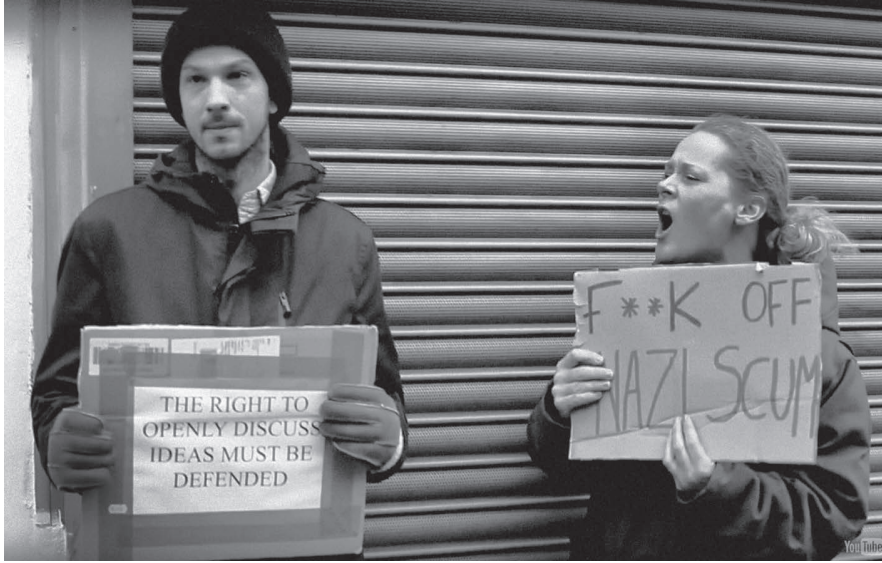 THE RIGHT TO
OPENLY DISCUSS
IDEAS MUST BE
DEFENDED
F**K OFF
NAZI SCUM
YouTube